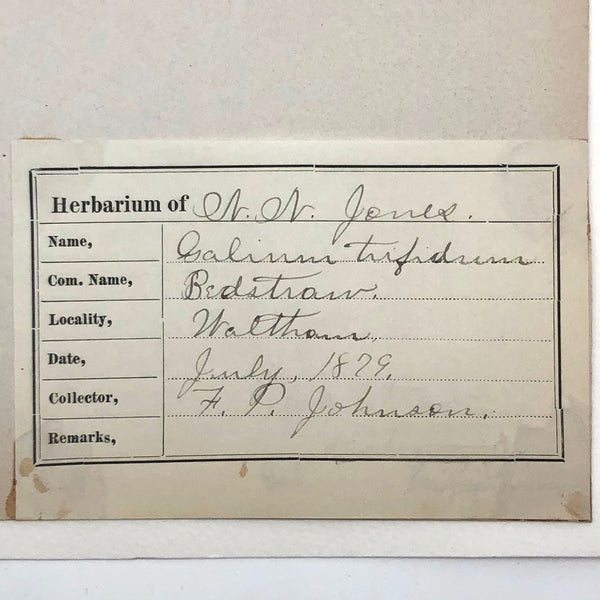 Herbarium of N. N. Jones.
Name, Galium trifidum
Com. Name, Bedstraw.
Locality, Waltham.
Date, July, 1879.
Collector, F. P. Johnson.
Remarks,